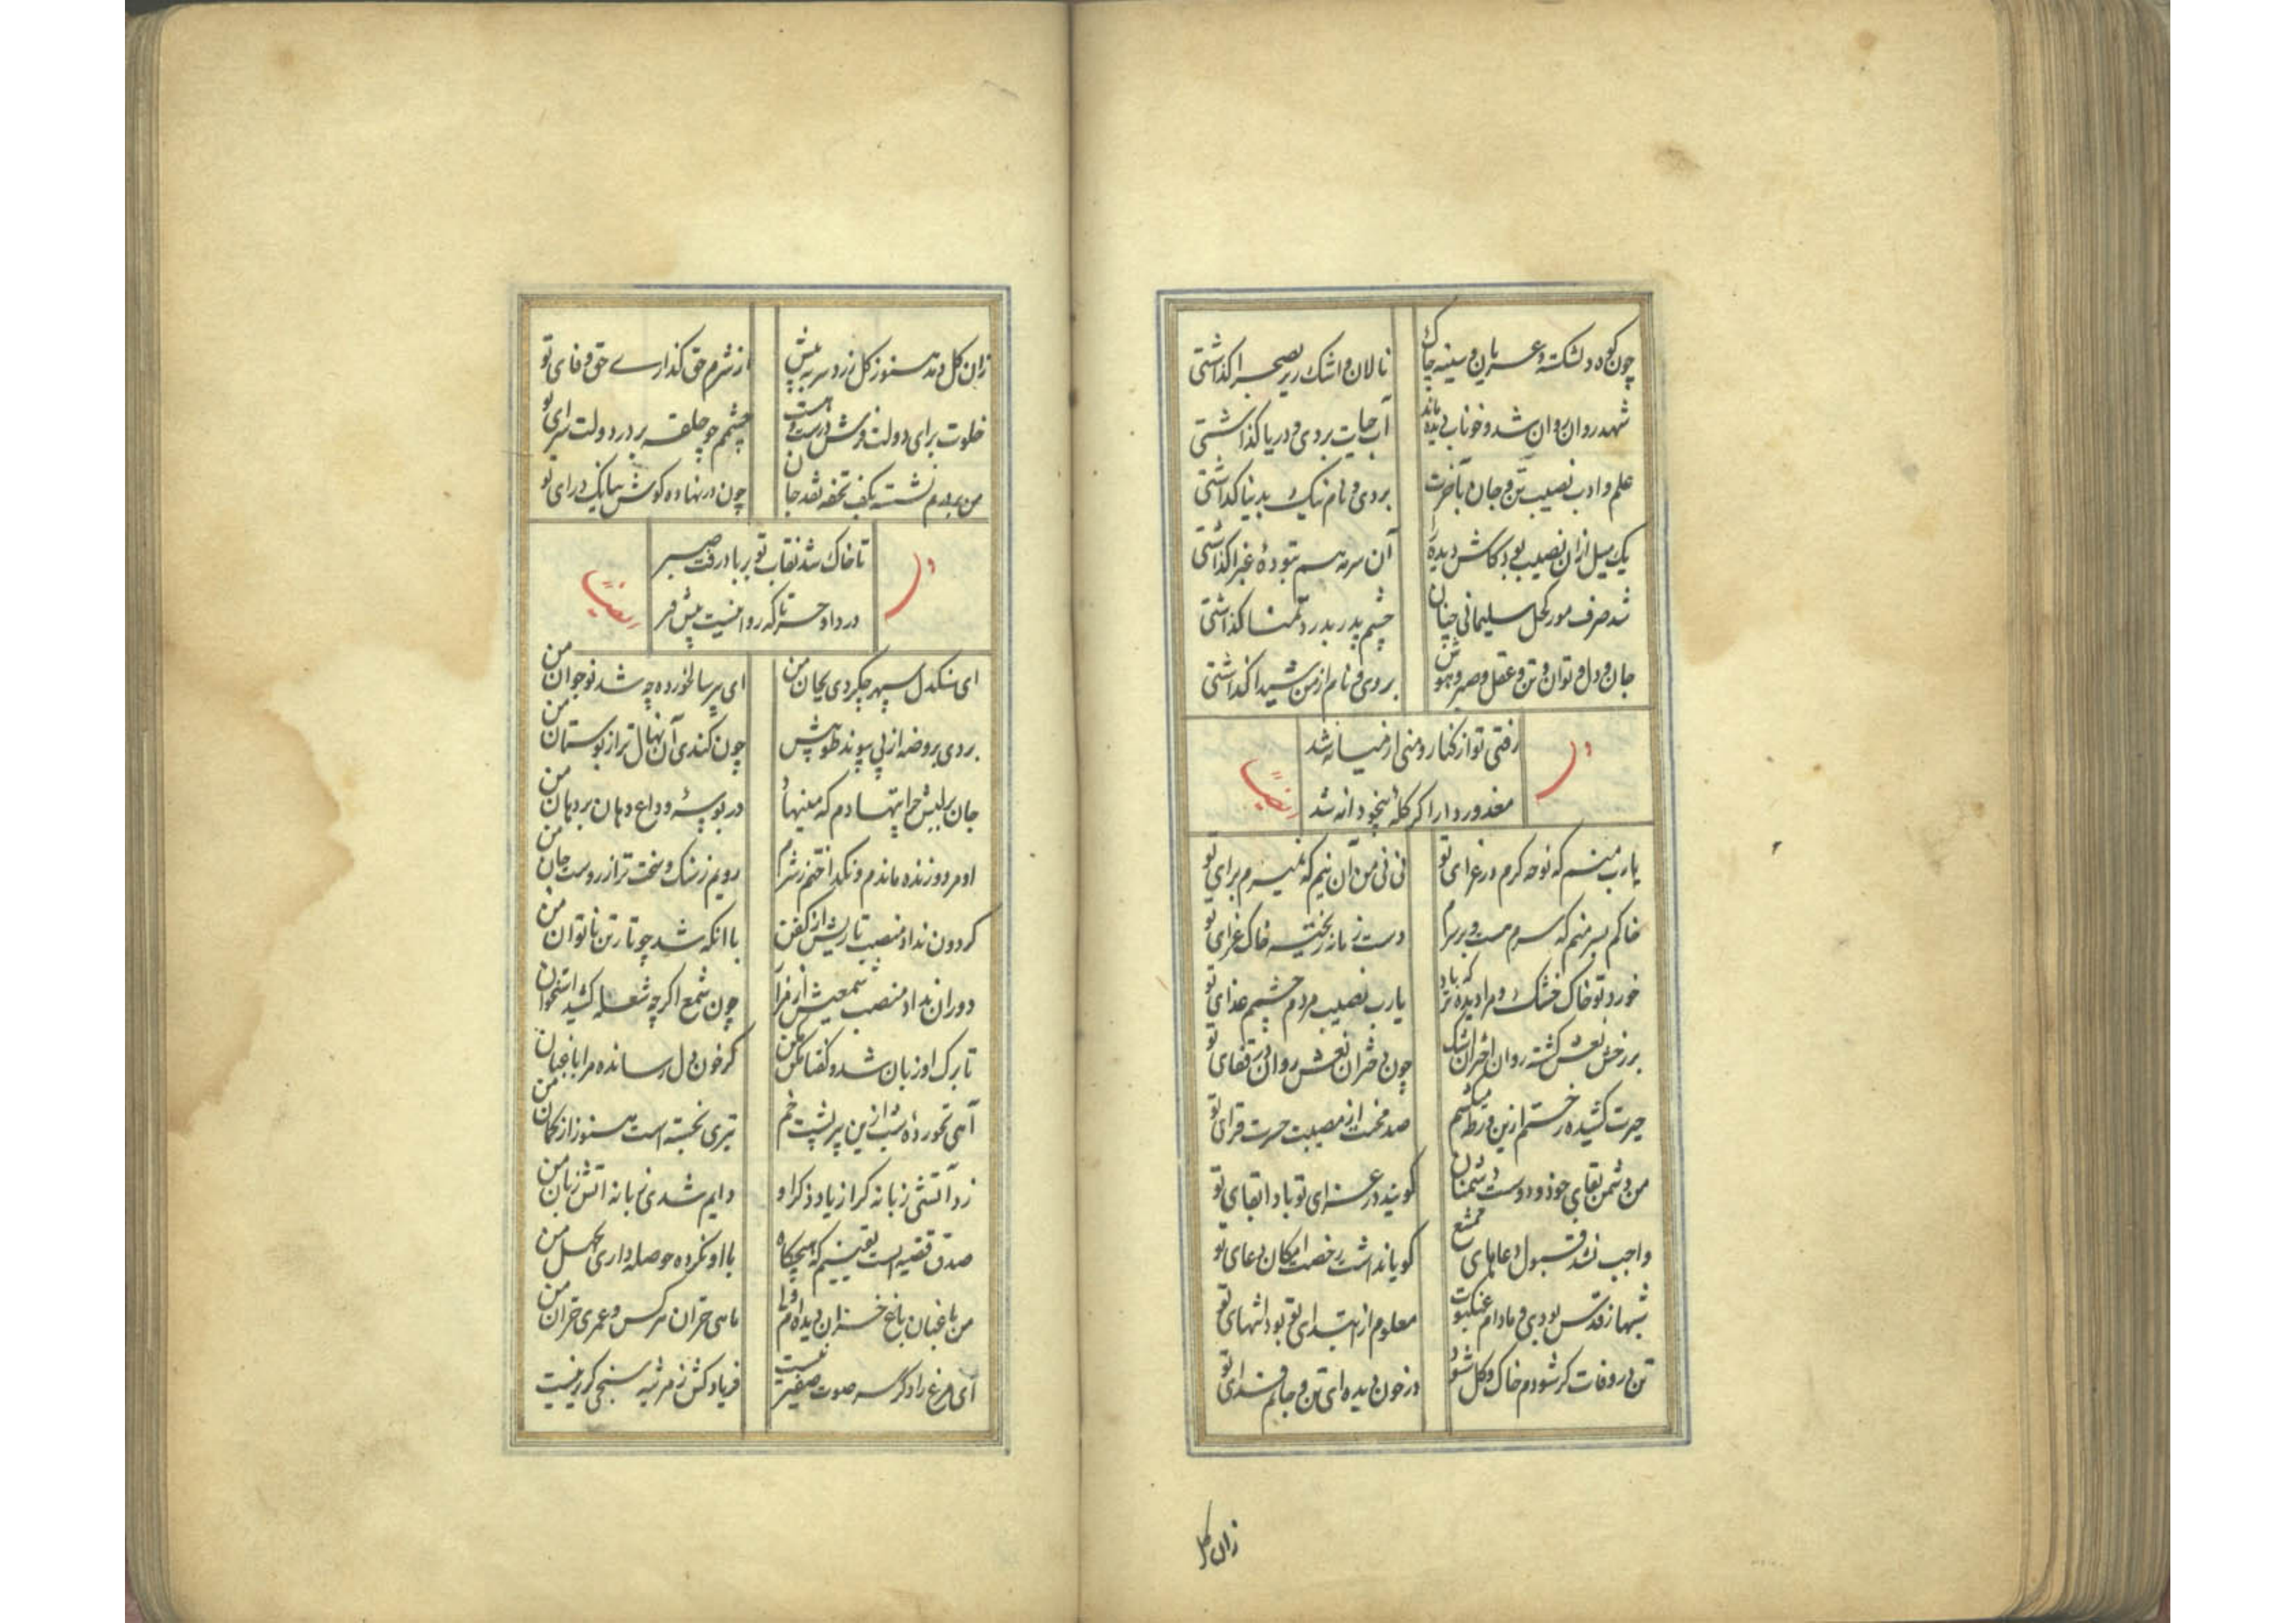 چون کوه دلشکسته و عریان و سینه چاک نالان و اشک ریز بصحرا گذاشتی
شهد روان روان شد و خوناب دیده ماند آب حیات بردی و دریا گذاشتی
علم و ادب نصیب تن و جان و آخرت بردی و نام نیک بدنیا گذاشتی
یک میل از ان نصیب نبودکاش دیده را آن سرمه هم بتودهٔ غبرا گذاشتی
شد صرف مور کحل سلیمانی چنان چشم پدر بدرد تمنا گذاشتی
جان و دل و توان و تن و عقل و صبر و هوش بردی و نام از من شیدا گذاشتی
رفتی تو از کنار و منی از میانه شد
معذور دار اگر گله بیخودانه شد
یارب منم که نوحه گرم در عزای تو نی نی من آن نیم که نمیرم برای تو
خاکم بسر منم که سرم هست و بر سرم دست زمانه ریخته خاک عزای تو
خورد تو خاک خشک و مرا دیده تر که باد یارب نصیب مردم چشمم غذای تو
بر رخش نعش گشته روان اختران اشک چون دختران نعش روان در قفای تو
حیرت کشیده رختم ازین ورطه میکشم صد محنت از مصیبت حسرت فزای تو
من دشمن بقای خود و دوست دشمنان گویند در عزای تو بادا بقای تو
واجب نشد قبول دعاهای ممتنع گویا نداشت رخصت امکان دعای تو
شهباز قدس بودی و ما دام عنکبوت معلوم از ابتدای تو بود انتهای تو
تن در وفات گر شودم خاک و گل شود در خون دیده ای تن و جانم فدای تو
زان گل
زان گل دمد هنوز گل زرد سر به پیش از شرم حق گذاری حق وفای تو
خلوت برای دولت و فرش درست هست چشمم چو حلقه بر در دولت سرای تو
من بر درم نشسته بکف تحفه نقد جان چون در نهاده گوش ببانگ درای تو
تا خاک شد نقاب تو بر باد رفت صبر
درد او حسرتا که روا نیست پیش قبر
ای سنگدل سپهر چکردی بجان من ای پیر سالخورده چه شد نوجوان من
بردی بروضه از پی پیوند طوبیش چون کندی آن نهال تر از بوستان من
جان بر لبش چرا ننهادم که مینهاد در بوسهٔ وداع دهان بر دهان من
او مرد و زنده ماندم و نگداختم ز شرم رویم ز سنگ و سخت تر از روست جان من
گردون نداد منصب تاریش از کفن با آنکه شد چو تار تن ناتوان من
دوران نداد منصب شمعیش از مزار چون شمع اگرچه شعله کشید استخوان من
تا برگ او زبان شد و گفتا مکن مکن گر خون دل رسانده مرا باغبان من
آهی نخورده شب ازین پیر پشت خم تیری نجسته است هنوز از کمان من
زد آتشی زبانه گر از یاد ذکر او دایم شدی زبانه آتش زبان من
صدق قضیه است یقینم که هیچگاه با او نکرده حوصله داری تحمل من
من باغبان باغ خزان دیده ام ولی ماهی خزان هر کس و عمری خزان من
آن مرغ را دگر سر صوت صفیر نیست فریادکش ز مرثیه سنجی گزیر نیست